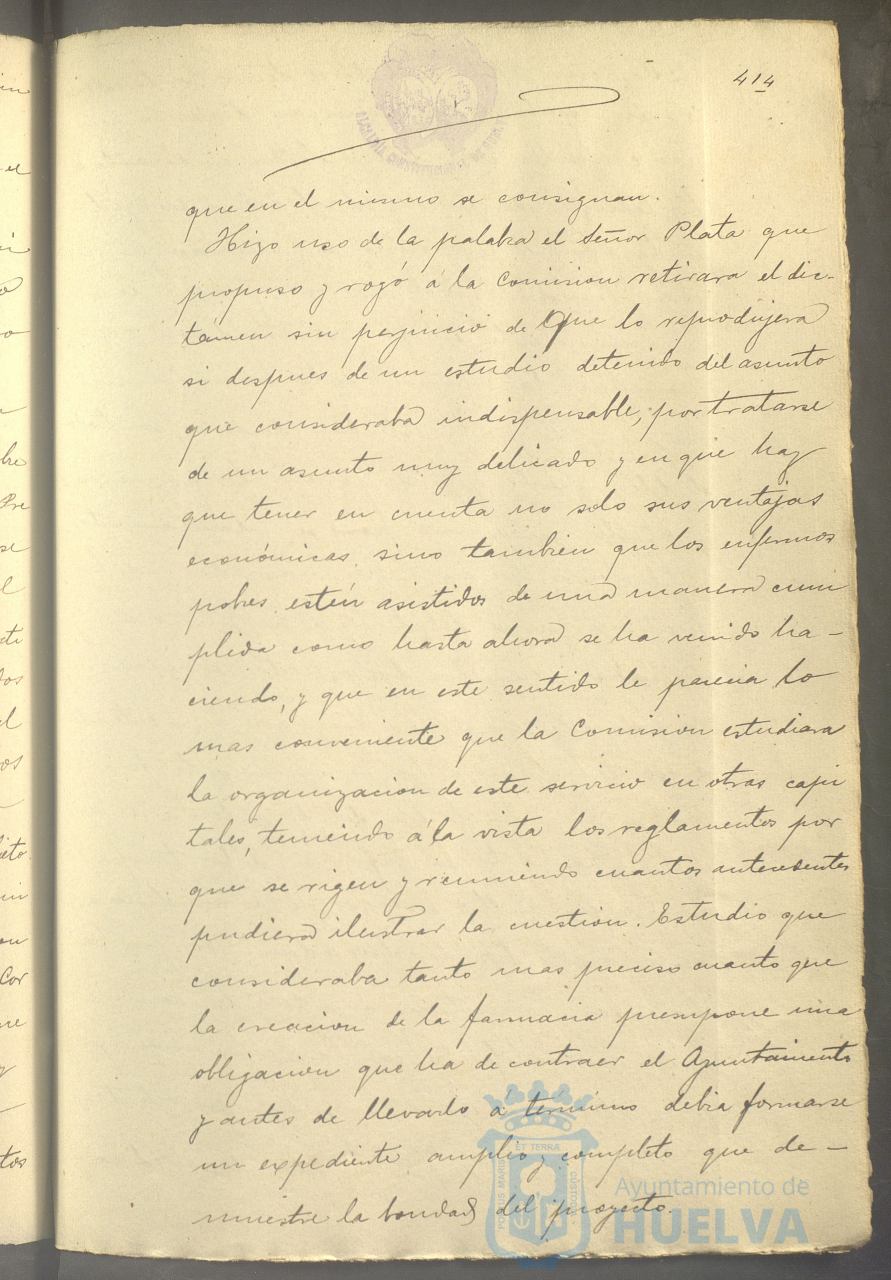 414
ALCALDIA CONSTITUCIONAL DE
que en el mismo se consignan.
Hizo uso de la palabra el Señor Plata que
propuso y rogó á la Comision retirara el dic-
támen sin perjuicio de que lo reprodujera
si despues de un estudio detenido del asunto
que consideraba indispensable, por tratarse
de un asunto muy delicado y en que hay
que tener en cuenta no solo sus ventajas
económicas sino tambien que los enfermos
pobres estén asistidos de una manera cum
plida como hasta ahora se ha venido ha-
ciendo, y que en este sentido le parecia lo
mas conveniente que la Comision estudiara
la organizacion de este servicio en otras capi
tales, teniendo á la vista los reglamentos por
que se rigen y reuniendo cuantos antecedentes
pudiera ilustrar la cuestion. Estudio que
consideraba tanto mas preciso cuanto que
la creacion de la farmacia presupone una
obligacion que ha de contraer el Ayuntamiento
y antes de llevarlo á término debia formarse
un expediente amplio y completo que de-
muestre la bondad del proyecto.
PORTUS MARIS ET TERRÆ CUSTODIA
Ayuntamiento de
HUELVA